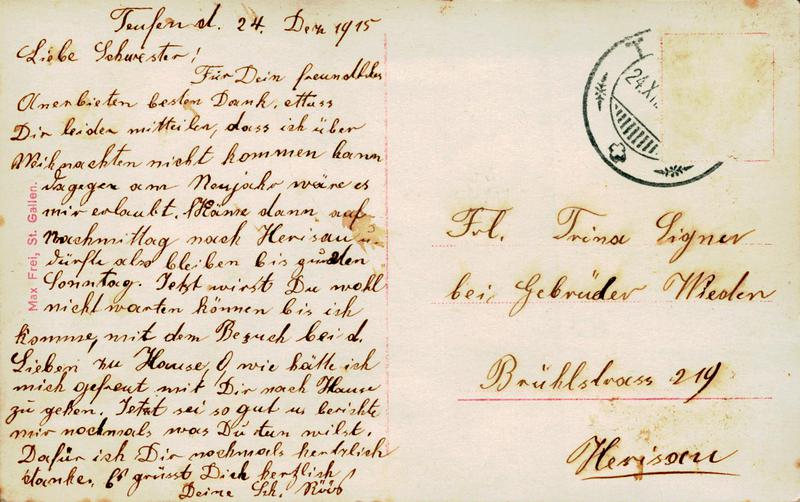 Teufen d. 24. Dez 1915
Liebe Schwester!
Für Dein freundliches
Anerbieten besten Dank, muss
Dir leider mitteilen, dass ich über
Weihnachten nicht kommen kann
dagegen am Neujahr wäre es
mir erlaubt. Käme dann auf
Nachmittag nach Herisau u.
dürfte also bleiben bis zum
Sonntag. Jetzt wirst Du wohl
nicht warten können bis ich
komme, mit dem Besuch bei d.
Lieben zu Hause, O, wie hätte ich
mich gefreut mit Dir nach Hause
zu gehen. Jetzt sei so gut u berichte
mir nochmals was Du tun wilst.
Dafür ich Dir nochmals herzlich
danke. Es grüsst Dich herzlich
Deine Sch.
Max Frei, St. Gallen.
24.XII
Frl. Trina Signer
bei Gebrüder Wieden
Brühlstrass 219
Herisau